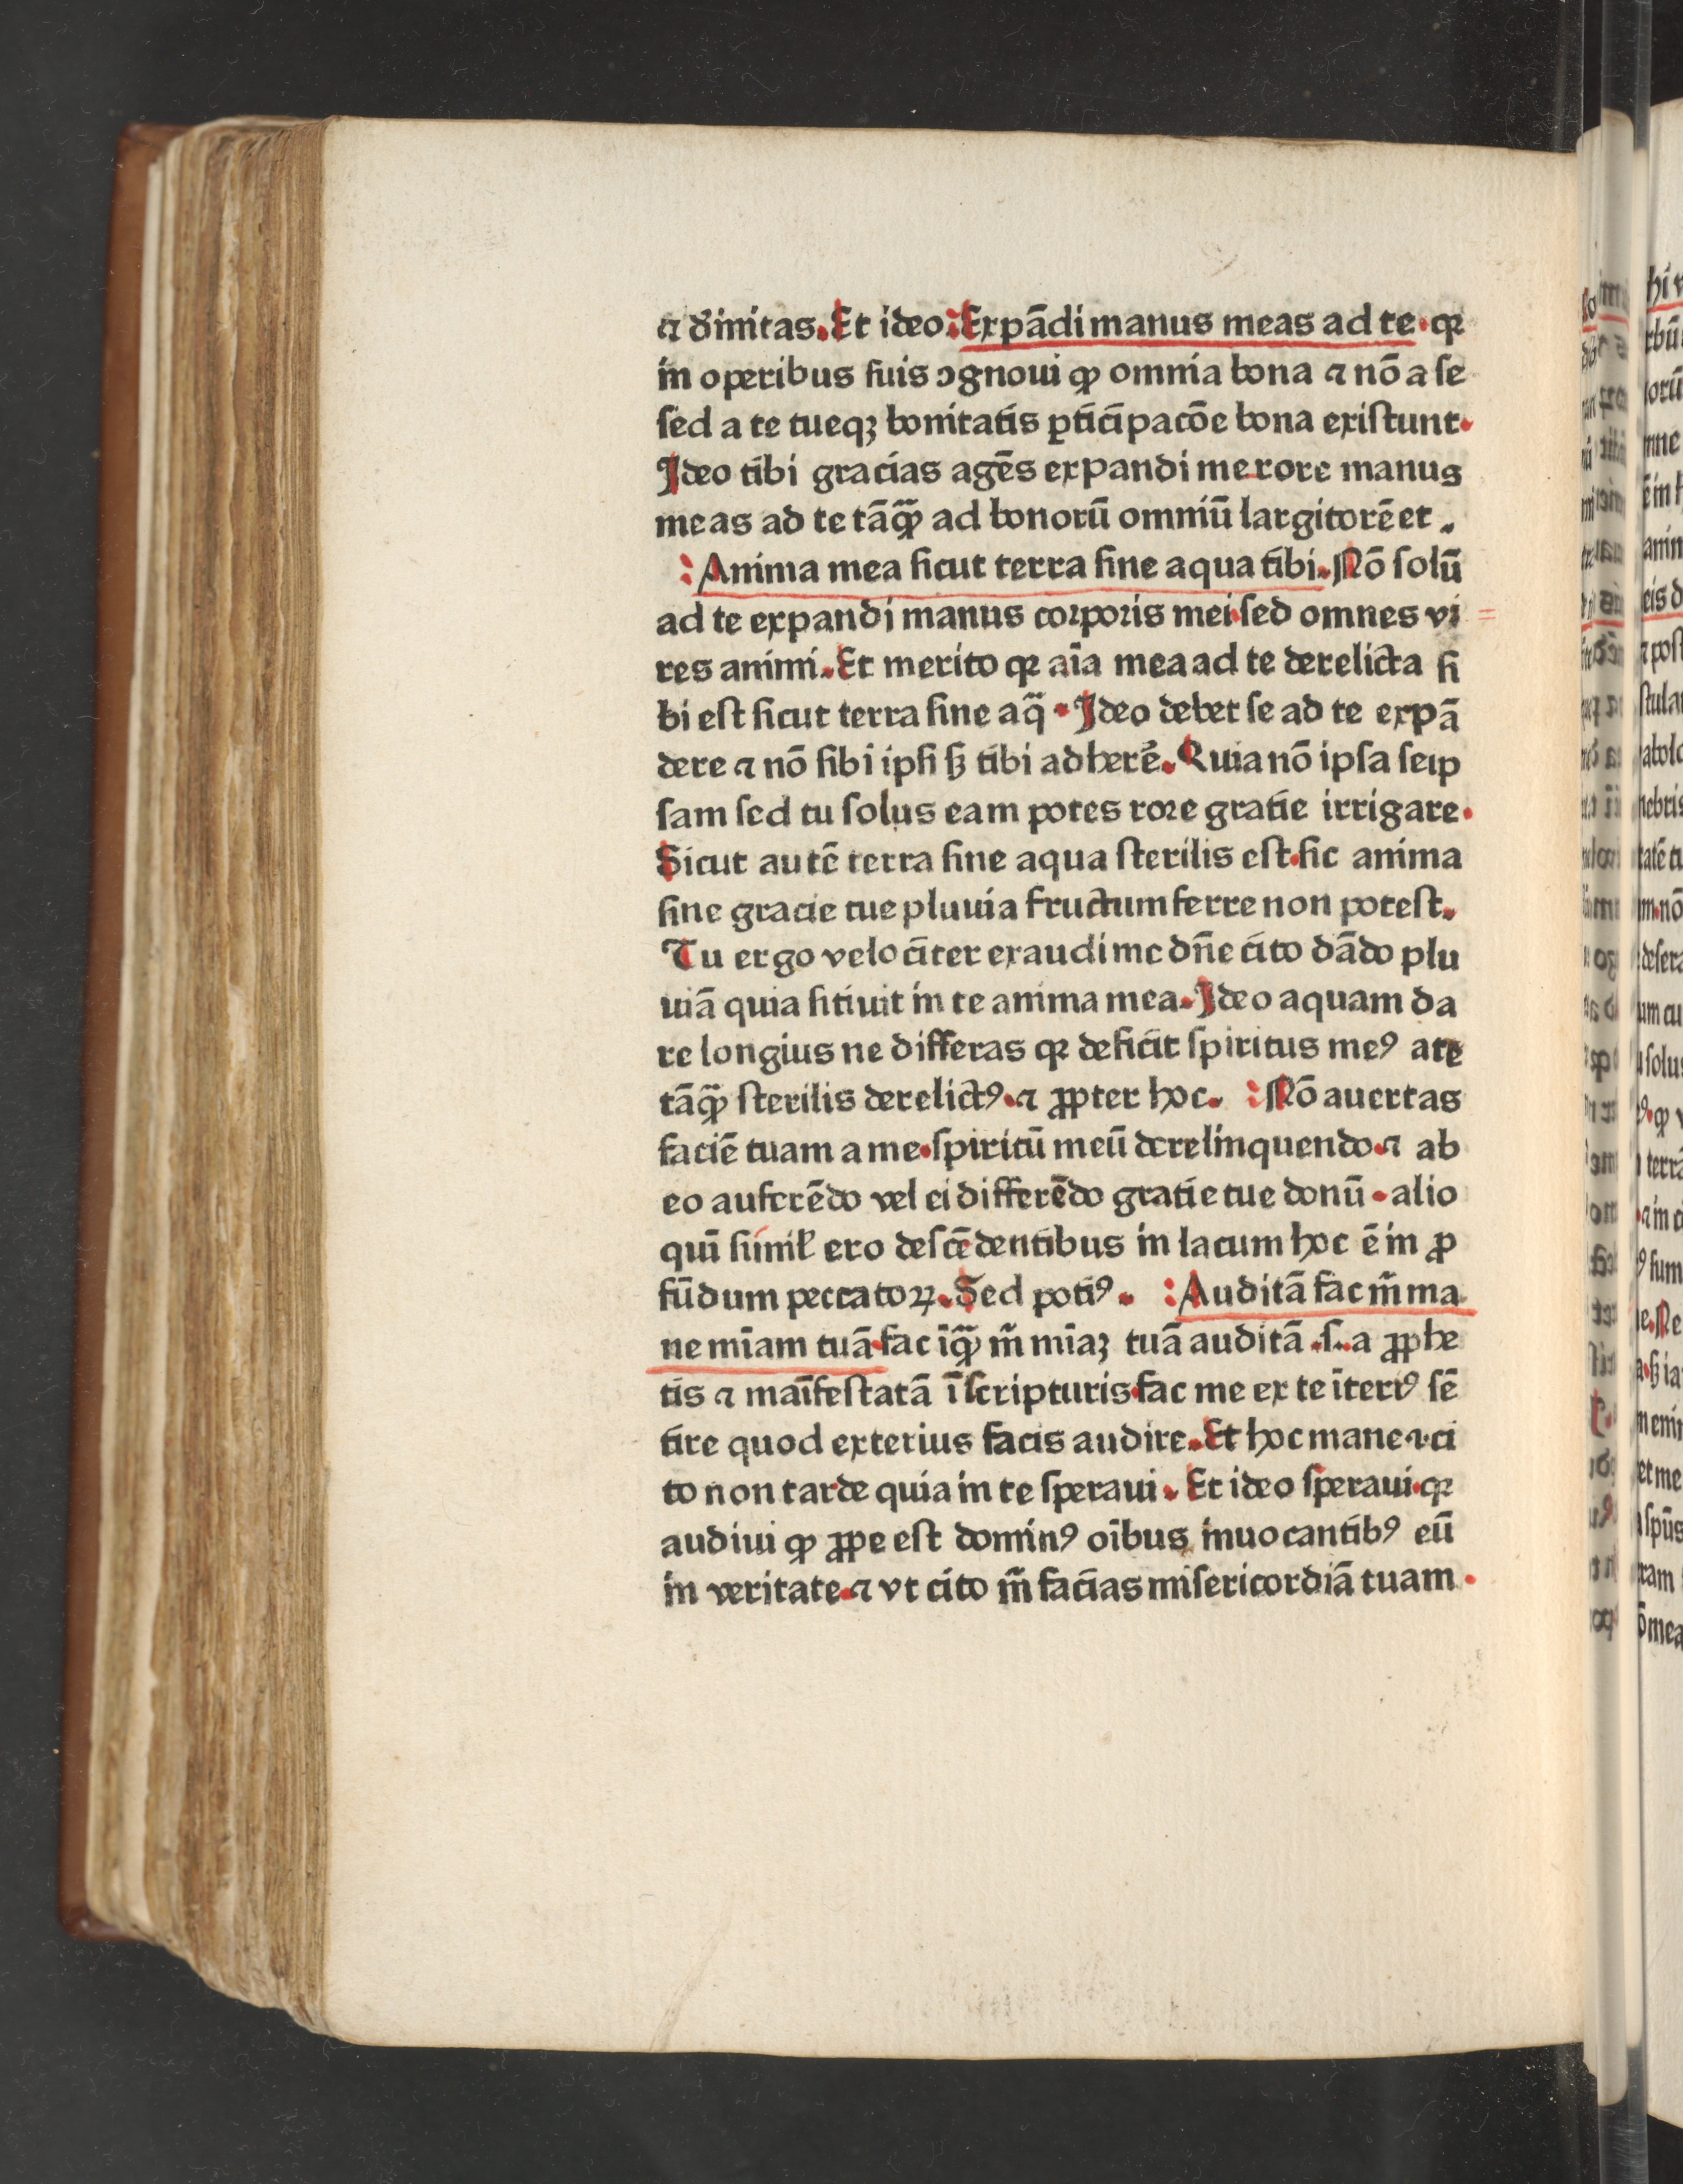 ⁊ dīnitas. Et ideo: Expādi manus meas ad te. qꝛ
in operibus suis ꝯgnoui ꝙ omnia bona ⁊ nō a se
sed a te tueqꝫ bonitatis ꝑticipacōe bona existunt.
Ideo tibi gracias agēs expandi merore manus
meas ad te tāꝙ̄ ad bonorū omniū largitorē et.
: Anima mea sicut terra sine aqua tibi. Nō solū
ad te expandi manus corporis mei. sed omnes vi
res animi. Et merito qꝛ aīa mea ad te derelicta si
bi est sicut terra sine aq̄. Ideo debet se ad te expā
dere ⁊ nō sibi ipsi sꝫ tibi adherē. Quia nō ipsa seip
sam sed tu solus eam potes rore gratie irrigare.
Sicut autē terra sine aqua sterilis est. sic anima
sine gracie tue pluuia fructum ferre non potest.
Tu ergo velociter exaudi me dn̄e cito dādo plu
uiā quia sitiuit in te anima mea. Ideo aquam da
re longius ne differas qꝛ deficit spiritus meꝰ a te
tāꝙ̄ sterilis derelictꝰ. ⁊ ꝓpter hoc. : Nō auertas
faciē tuam a me. spiritū meū derelinquendo. ⁊ ab
eo auferēdo vel ei differēdo gratie tue donū. alio
quī simił ero descēdentibus in lacum hoc ē in ꝓ
fūdum peccatoꝝ. Sed potiꝰ. : Auditā fac m̄ ma
ne mīam tuā. fac iꝙ̄ m̄ mīaꝫ tuā auditā .s. a ꝓphe
tis ⁊ maīfestatā ī scripturis. fac me ex te īteriꝰ sē
tire quod exterius facis audire. Et hoc mane .⁊. ci
to non tarde quia in te speraui. Et ideo speraui. qꝛ
audiui ꝙ ꝓpe est dominꝰ oībus inuocantibꝰ eū
in veritate. ⁊ vt cito m̄ facias misericordiā tuam.